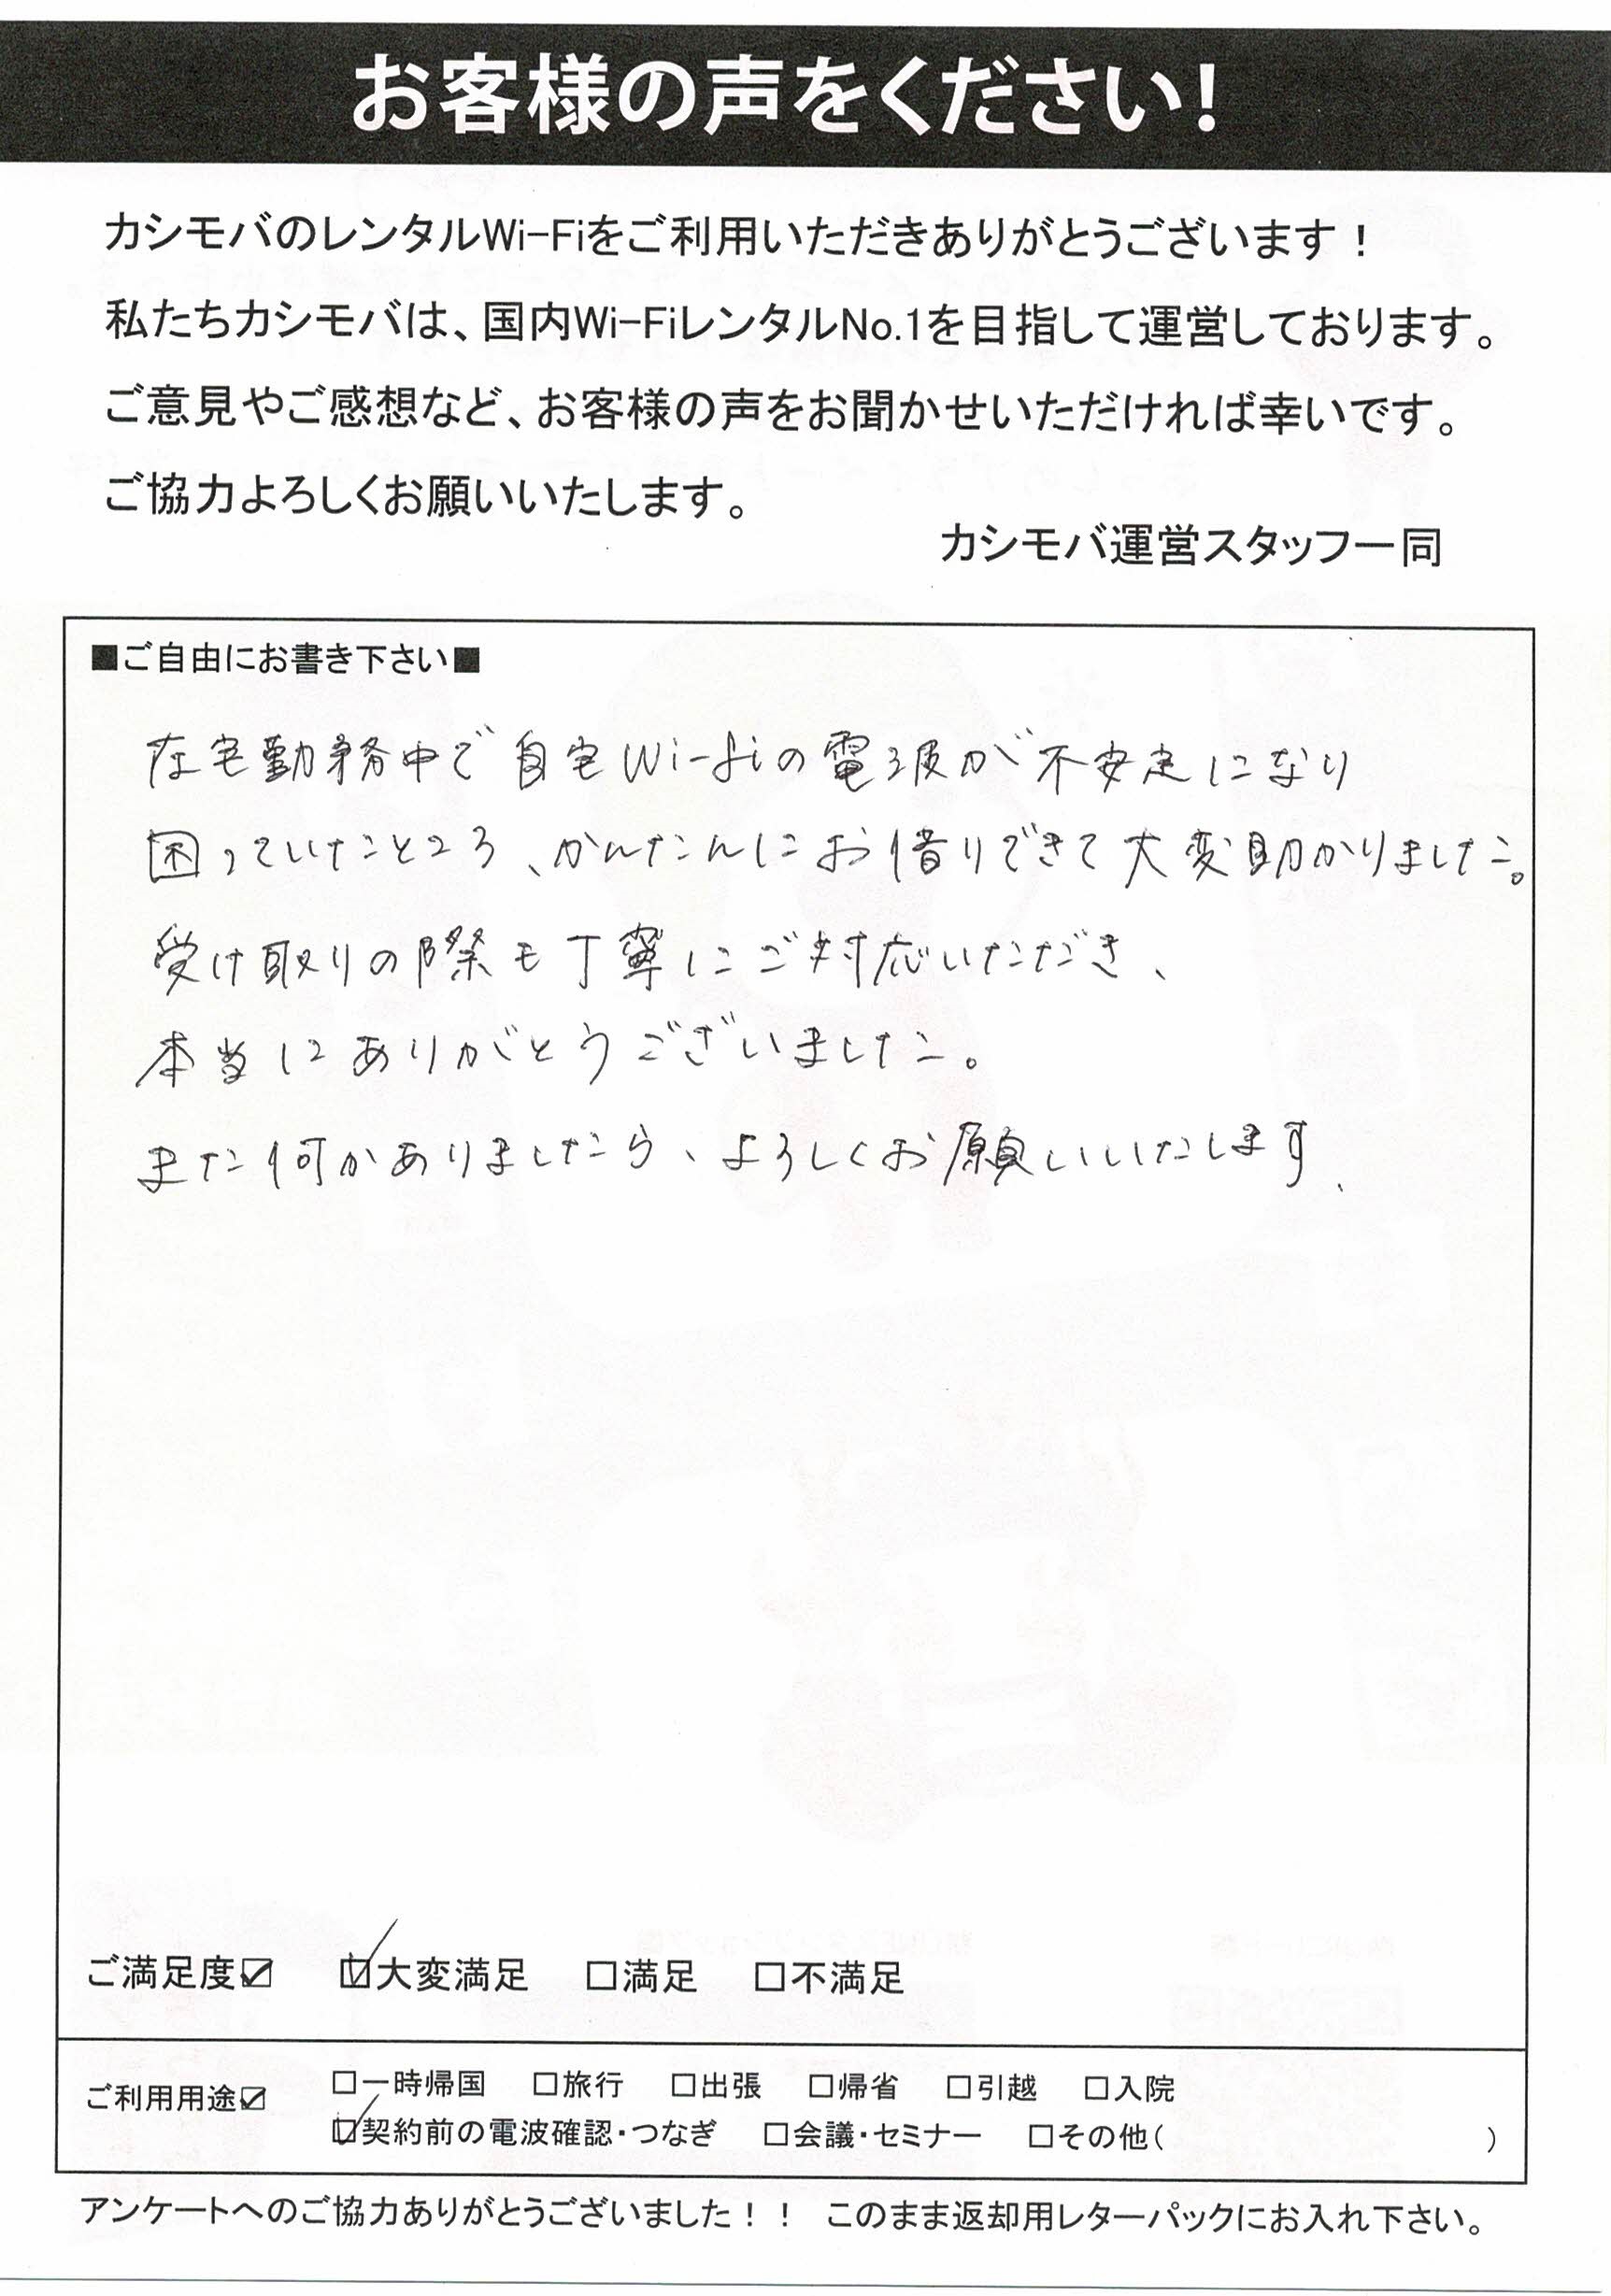 お客様の声をください!
カシモバのレンタルWi-Fiをご利用いただきありがとうございます！
私たちカシモバは、国内Wi-FiレンタルNo.1を目指して運営しております。
ご意見やご感想など、お客様の声をお聞かせいただければ幸いです。
ご協力よろしくお願いいたします。
カシモバ運営スタッフ一同
■ご自由にお書き下さい■
在宅勤務中で自宅Wi-fiの電波が不安定になり
困っていたところ、かんたんにお借りできて大変助かりました。
受け取りの際も丁寧にご対応いただき、
本当にありがとうございました。
また何かありましたら、よろしくお願いいたします、
ご満足度☑ ☑大変満足 □満足 □不満足
ご利用用途☑ □一時帰国 □旅行 □出張 □帰省 □引越 □入院
☑契約前の電波確認・つなぎ □会議・セミナー □その他( )
アンケートへのご協力ありがとうございました！！ このまま返却用レターパックにお入れ下さい。